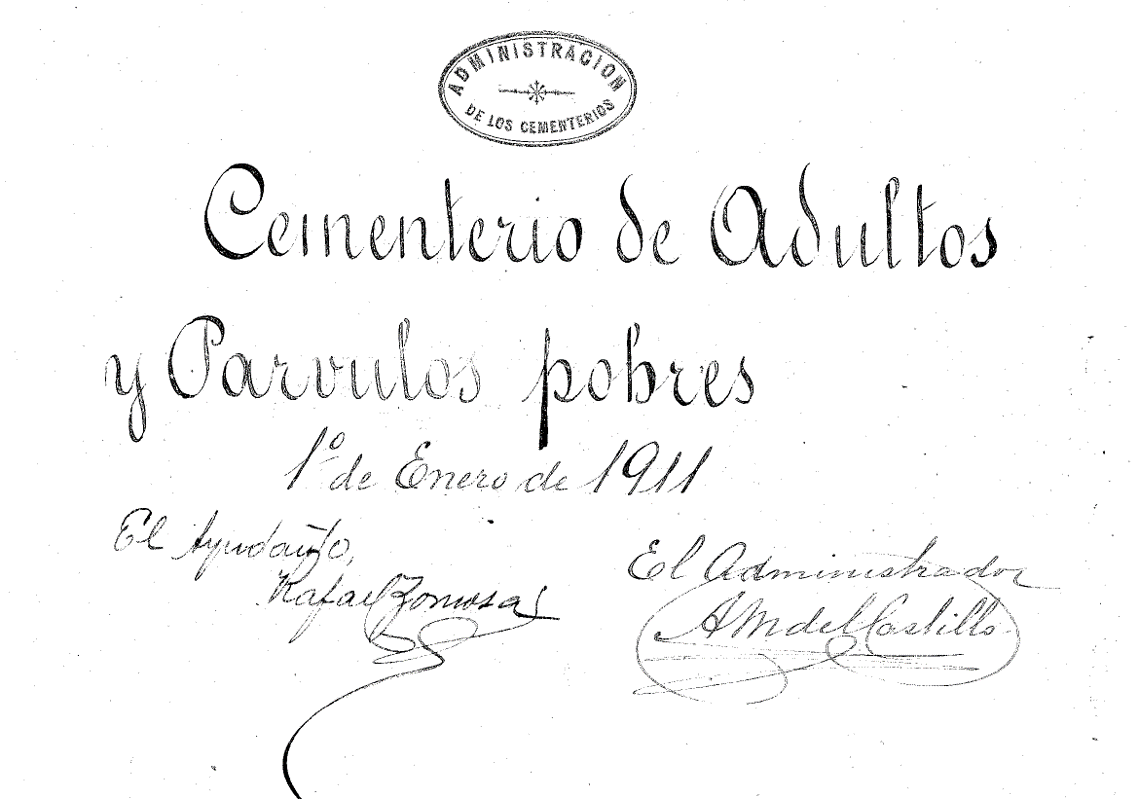 ADMINISTRACION
DE LOS CEMENTERIOS
Cementerio de Adultos
y Parvulos pobres
1º de Enero de 1911
El Ayudante,
El Administrador
Rafael
A M del Castillo